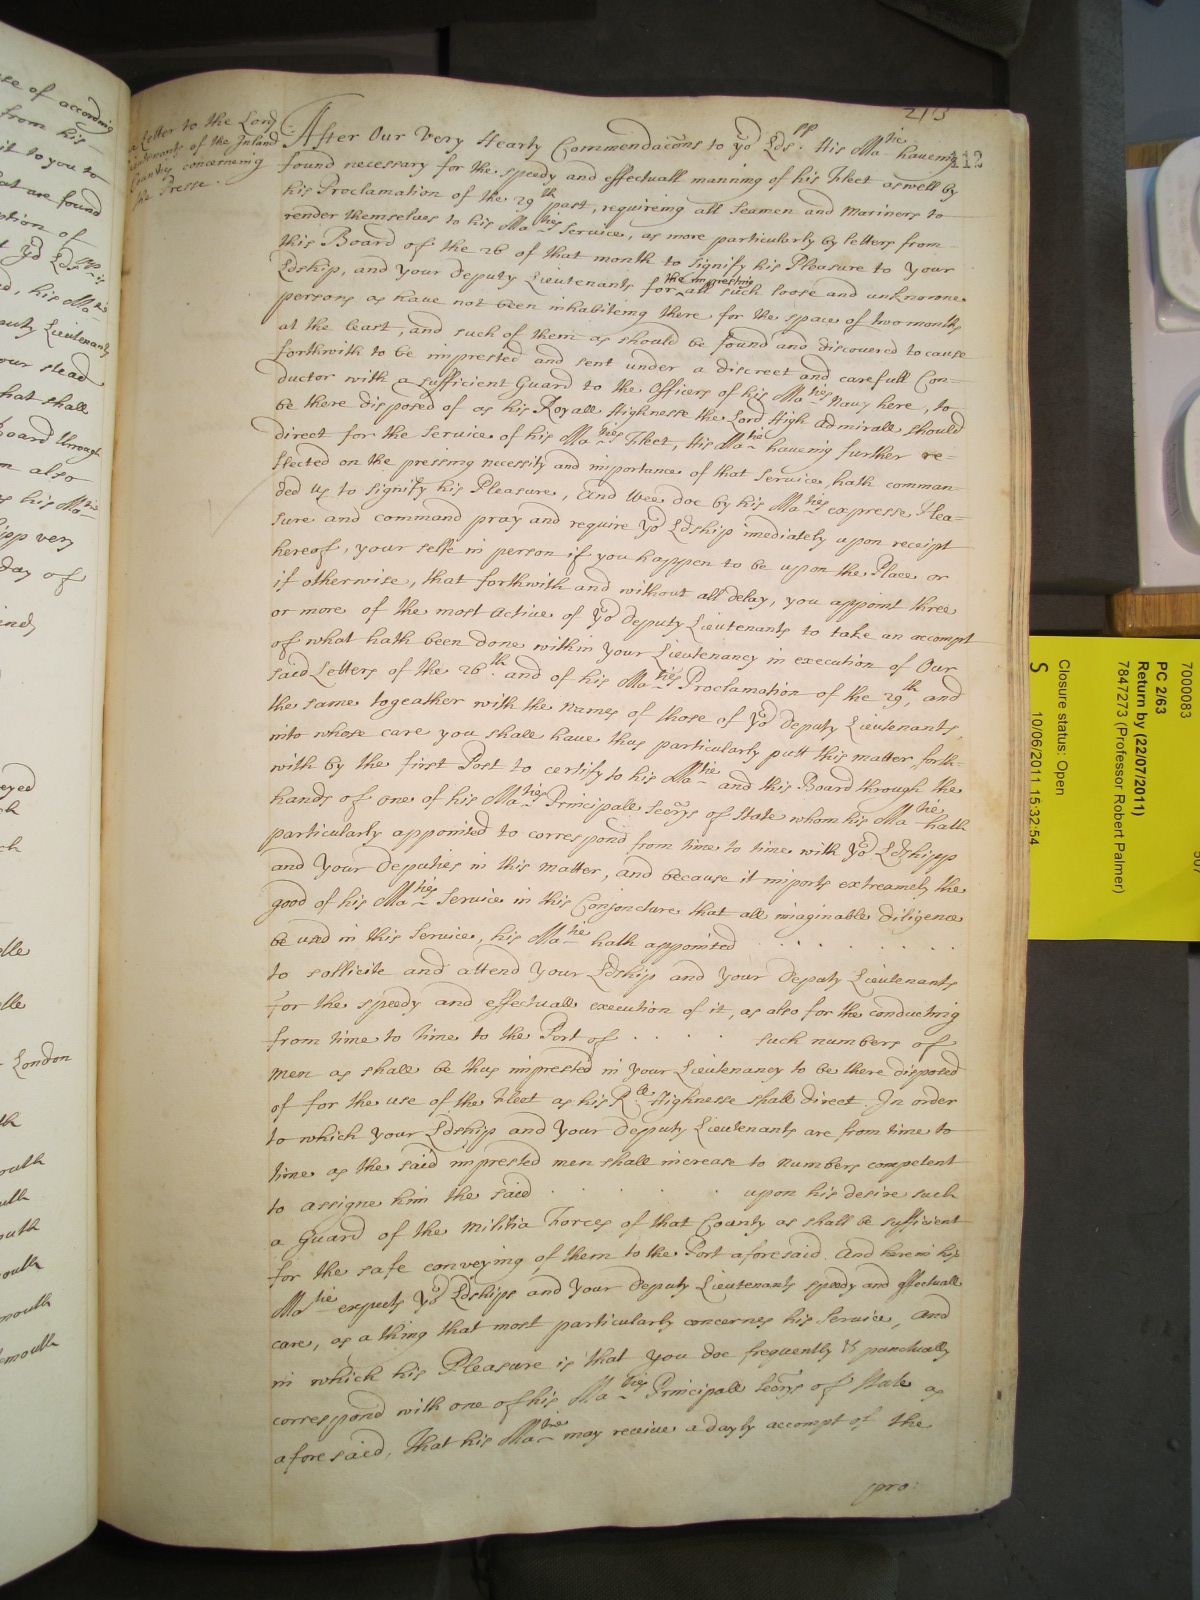 213
112
a Letter to the Lord
Lieutenants of the Inland
Counties concerneing
the Presse.
After Our very Hearty Commendacons to yor Ldspp. His Matie haveing
found necessary for the speedy and effectuall manning of his Fleet aswell by
his Proclamation of the 29th past, requireing all Seamen and Mariners to
render themselves to his Maties Service, as more particularly by letters from
this Board of the 26 of that month to signify his Pleasure to your
Ldship, and your Deputy Lieutenants for the impresting all such loose and unknowne
persons as have not been inhabiteing there for the space of two months
at the least, and such of them as should be found and discovered to cause
forthwith to be imprested and sent under a discreet and carefull Con=
ductor with a sufficient Guard to the Officers of his Maties Navy here, to
be there disposed of as his Royall Highnesse the Lord High Admirall should
direct for the Service of his Maties Fleet, His Matie haveing further re=
flected on the pressing necessity and importance of that Service, hath comman=
ded us to signify his Pleasure, And Wee doe by his Maties expresse Plea=
sure and command pray and require yor Ldship imediately upon receipt
hereof, your selfe in person if you happen to be upon the Place or
if otherwise, that forthwith and without all delay, you appoint three
or more of the most Active of yor Deputy Lieutenants to take an accompt
of what hath been done within your Lieutenancy in execution of Our
said Letters of the 26th. and of his Maties Proclamation of the 29th, and
the same togeather with the names of those of yor Deputy Lieutenants,
into whose care you shall have thus particularly putt this matter forth=
with by the first Post to certify to his Matie and this Board through the
hands of one of his Maties Principall Secrys of State whom his Matie hath
particularly appointed to correspond from time to time with yor Ldshipp
and your Deputies in this matter, and because it imports extreamely the
good of his Maties Service in this Conjoncture that all imaginable diligence
be used in this Service, his Matie hath appointed . . . . . . . .
to sollicite and attend your Ldship and your Deputy Lieutenants
for the speedy and effectuall execution of it, as also for the conducting
from time to time to the Port of . . . . such numbers of
men as shall be thus imprested in your Lieutenancy to be there disposed
of for the use of the Fleet as his Rll Highnesse shall direct. In order
to which your Ldship and your Deputy Lieutenants are from time to
time as the said imprested men shall increase to numbers competent
to assigne him the said . . . . . upon his desire such
a guard of the Militia Forces of that County as shall be sufficient
for the safe conveying of them to the Port aforesaid. And herein his
Matie expects yor Ldships and your Deputy Lieutenants speedy and effectuall
care, as a thing that most particularly concernes his Service, And
in which his Pleasure is that you doe frequently & punctually
correspond with one of his Maties Principall Secrys of State as
aforesaid, That his Matie may receive a dayly accompt of the
pro:
use of according
from his
it to you to
hat are found
ption of
puty Lieutenants
our stead
hat shall
Board through
m also
s his Maties
pp very
day of
eyed
ch
elle
elle
London
th
outh
outh
outh
mouth
mouth
7000083
PC 2/63
Return by (22/07/2011)
7847273 (Professor Robert Palmer)
Closure status: Open
S 10/06/2011 15:32:54